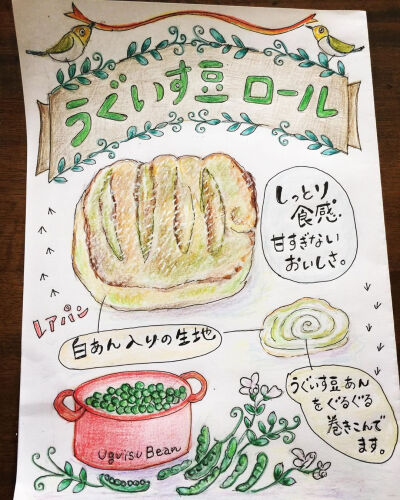 うぐいす豆 ロール
しっとり
食感
甘すぎない
おいしさ。
レアパン
白あん入りの生地
うぐいす豆あん
をぐるぐる
巻きこんで
ます。
Uguisu Bean